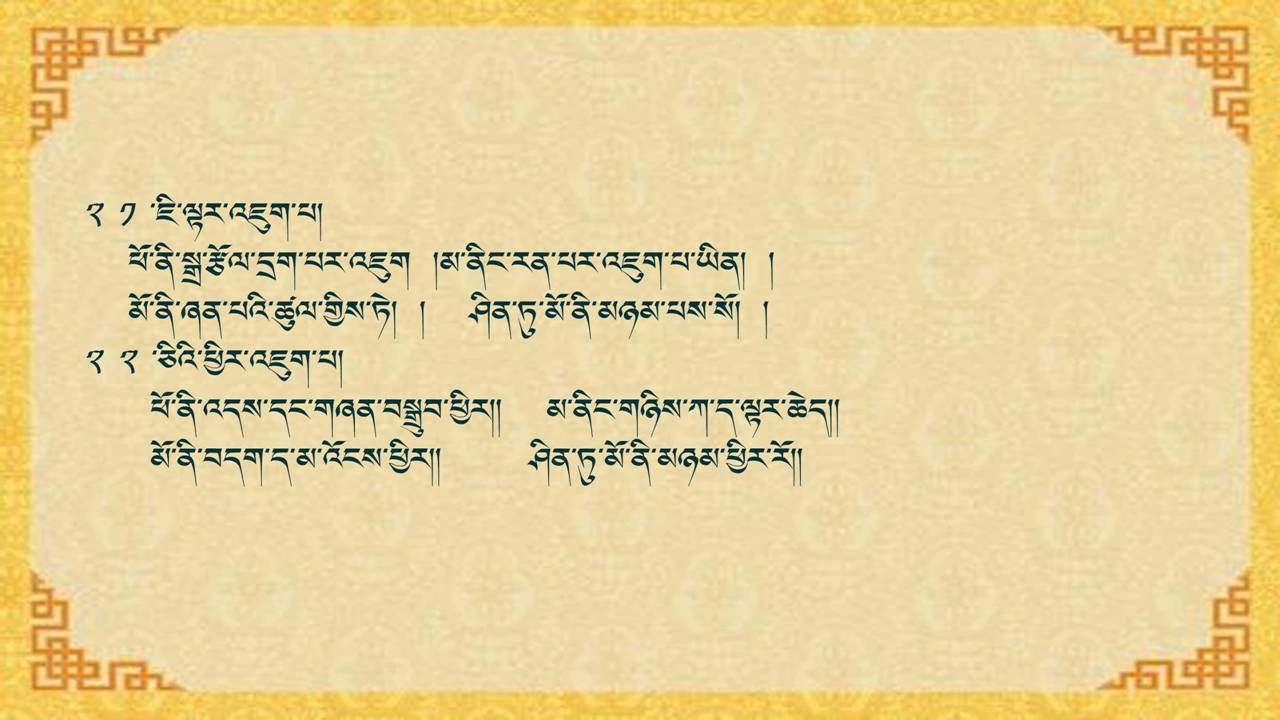 ༢ ༡ ་ཇི་ལྟར་འཇུག་པ།
ཕོ་ནི་སྒྲ་རྩོལ་དྲག་པར་འཇུག །མ་ནིང་རན་པར་འཇུག་པ་ཡིན། །
མོ་ནི་ཞན་པའི་ཚུལ་གྱིས་ཏེ། ། ཤིན་ཏུ་མོ་ནི་མཉམ་པས་སོ། །
༢ ༢ ་ཅིའི་ཕྱིར་འཇུག་པ།
ཕོ་ནི་འདས་དང་གཞན་བསྒྲུབ་ཕྱིར།། མ་ནིང་གཉིས་ཀ་ད་ལྟར་ཆེད།།
མོ་ནི་བདག་ད་མ་འོངས་ཕྱིར།། ཤིན་ཏུ་མོ་ནི་མཉམ་ཕྱིར་རོ།།